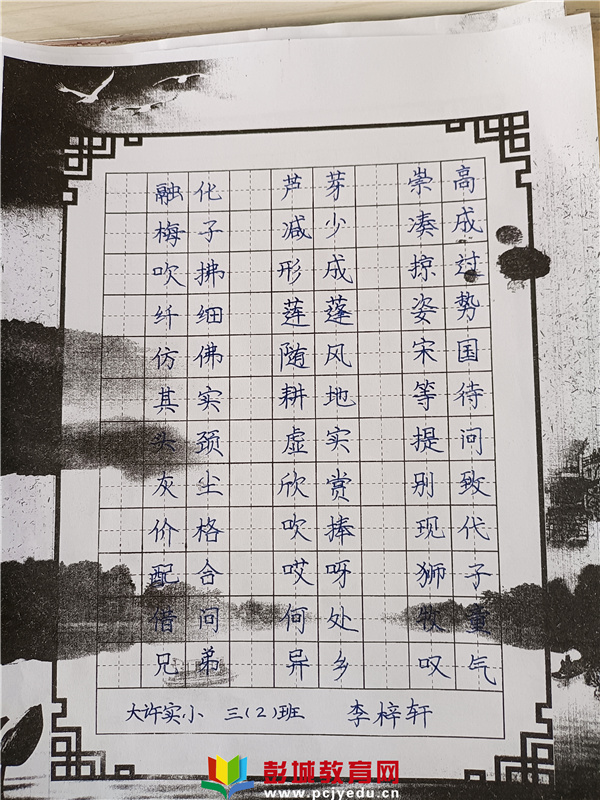 融化 芦芽 崇高
梅子 减少 凑成
吹拂 形成 掠过
纤细 莲蓬 姿势
仿佛 随风 宋国
其实 耕地 等待
头颈 虚实 提问
灰尘 欣赏 别致
价格 吹捧 现代
配合 哎呀 狮子
借问 何处 牧童
兄弟 异乡 叹气
大许实小 三(2)班 李梓轩
彭城教育网
www.pcjyedu.cn